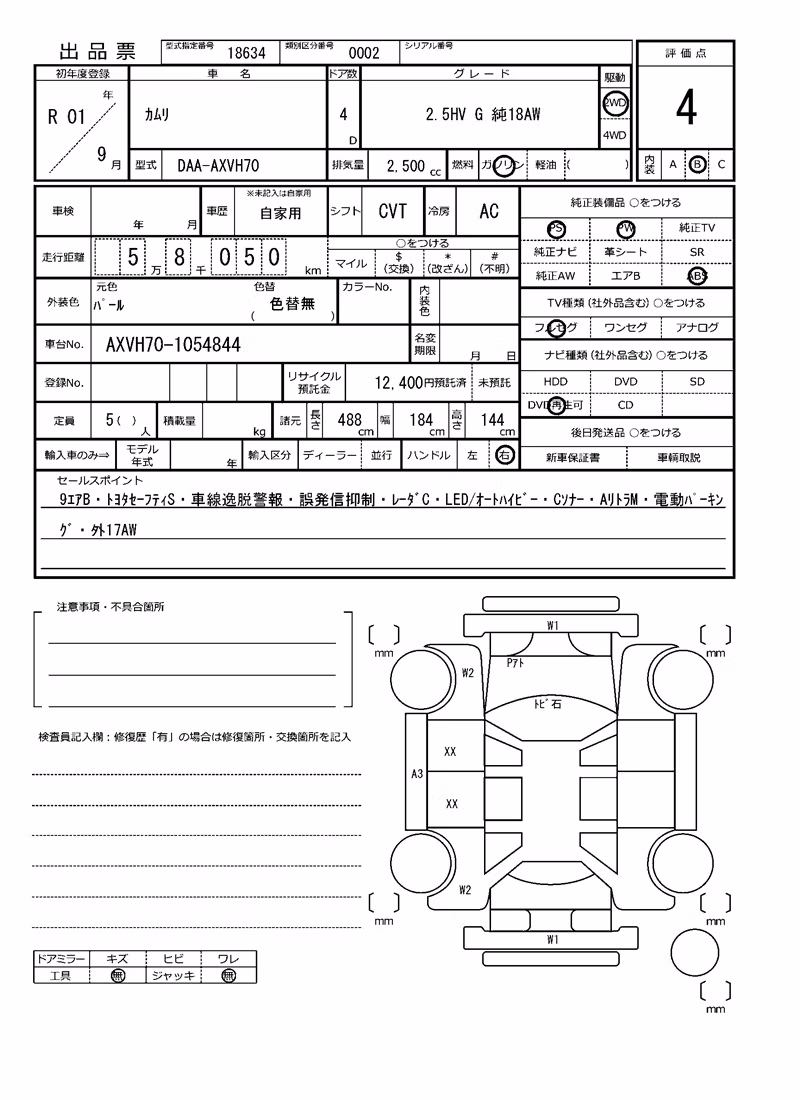 出品票 型式指定番号 18634 類別区分番号 0002 シリアル番号
評価点
初年度登録 車名 ドア数 グレード 駆動
R 01 年 9 月 カムリ 4 D 2.5HV G 純18AW 2WD 4WD
4
型式 DAA-AXVH70 排気量 2,500 cc 燃料 ガソリン 軽油 ( )
内装 A B C
車検 年 月 車歴 ※未記入は自家用 自家用 シフト CVT 冷房 AC
純正装備品 ○をつける
PS PW 純正TV
走行距離 5 万 8 千 0 5 0 km ○をつける
マイル $ (交換) * (改ざん) # (不明)
純正ナビ 革シート SR
純正AW エアB ABS
外装色 元色 パール 色替 ( 色替無 ) カラーNo. 内装色
TV種類(社外品含む)○をつける
フルセグ ワンセグ アナログ
車台No. AXVH70-1054844 名変期限 月 日
ナビ種類(社外品含む)○をつける
HDD DVD SD
DVD再生可 CD
登録No. リサイクル預託金 12,400円預託済 未預託
定員 5( ) 人 積載量 kg 諸元 長さ 488 cm 幅 184 cm 高さ 144 cm
後日発送品 ○をつける
新車保証書 車輌取説
輸入車のみ⇒ モデル年式 年 輸入区分 ディーラー 並行 ハンドル 左 右
セールスポイント
9エアB・トヨタセーフティS・車線逸脱警報・誤発信抑制・レーダC・LED/オートハイビー・Cソナー・Aリトラ M・電動パーキン
グ・外17AW
注意事項・不具合箇所
検査員記入欄:修復歴「有」の場合は修復箇所・交換箇所を記入
W1
mm mm
W2 Pアト
トビ石
XX
A3
XX
W2
mm mm
W1
mm
ドアミラー キズ ヒビ ワレ
工具 無 ジャッキ 無